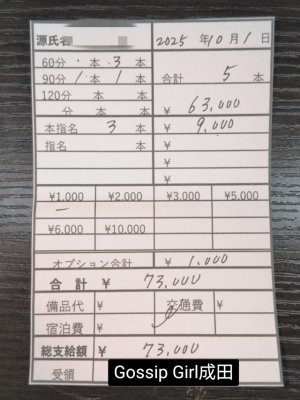 源氏名 2025年10月1日
60分 ・本 3本
90分 1本 1本 合計 5本
120分 本 本
分 本 本 ¥ 63,000
本指名 3本 ¥ 9,000
指名 本 ¥
¥
¥
¥1,000 ¥2,000 ¥3,000 ¥5,000
一
¥6,000 ¥10,000
オプション合計 ¥ 1,000
合計 ¥ 73,000
備品代 ¥ 交通費
宿泊費 ¥ ¥
総支給額 ¥ 73,000
受領
Gossip Girl成田